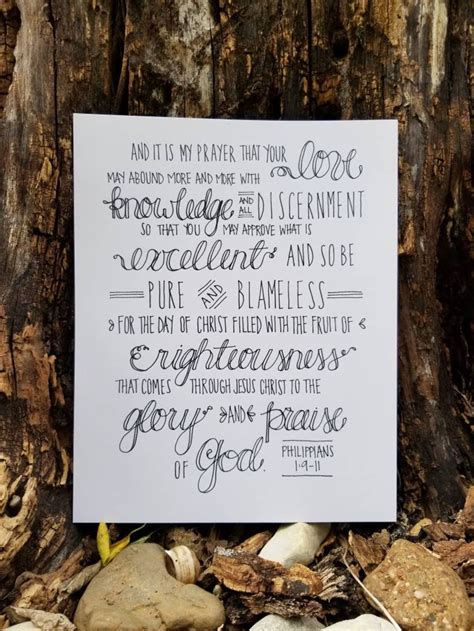 AND IT IS MY PRAYER THAT YOUR love
MAY ABOUND MORE AND MORE WITH
knowledge AND ALL DISCERNMENT
SO THAT YOU MAY APPROVE WHAT IS
excellent AND SO BE
PURE AND BLAMELESS
FOR THE DAY OF CHRIST FILLED WITH THE FRUIT OF
righteousness
THAT COMES THROUGH JESUS CHRIST TO THE
glory AND praise
OF God.
PHILIPPIANS
1:9-11